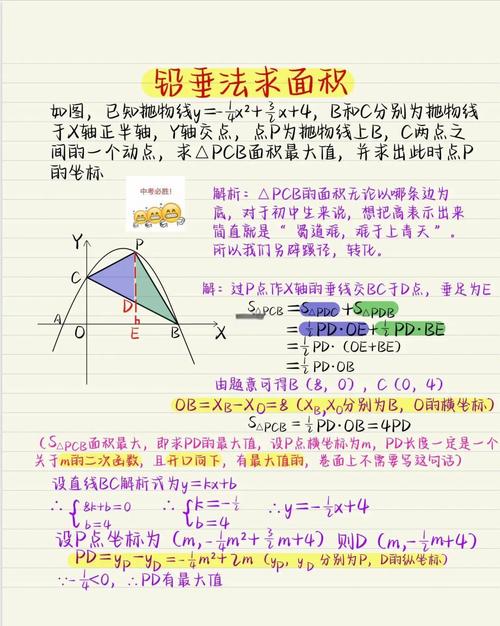 铅垂法求面积
如图，已知抛物线y=-1/4x²+3/2x+4，B和C分别为抛物线
于X轴正半轴，Y轴交点，点P为抛物线上B，C两点之
间的一个动点，求△PCB面积最大值，并求出此时点P
的坐标
中考必胜！
解析：△PCB的面积无论以哪条边为
底，对于初中生来说，想把高表示出来
简直就是“蜀道难，难于上青天”。
所以我们另辟蹊径，转化。
Y
P
C
D
A
O
E
B
X
解：过P点作X轴的垂线交BC于D点，垂足为E
S△PCB=S△PDC+S△PDB
=1/2PD·OE+1/2PD·BE
=1/2PD·(OE+BE)
=1/2PD·OB
由题意可得B(8,0)，C(0,4)
OB=XB-XO=8(XB,XO分别为B，O的横坐标)
S△PCB=1/2PD·OB=4PD
(S△PCB面积最大，即求PD的最大值，设P点横坐标为m，PD长度一定是一个
关于m的二次函数，且开口向下，有最大值的，卷面上不需要写这句话)
设直线BC解析式为y=kx+b
∴{8k+b=0 ∴{k=-1/2 ∴y=-1/2x+4
b=4 b=4
设P点坐标为(m,-1/4m²+3/2m+4)则D(m,-1/2m+4)
PD=yP-yD=-1/4m²+2m(yP,yD分别为P，D的纵坐标)
∵-1/4<0，∴PD有最大值